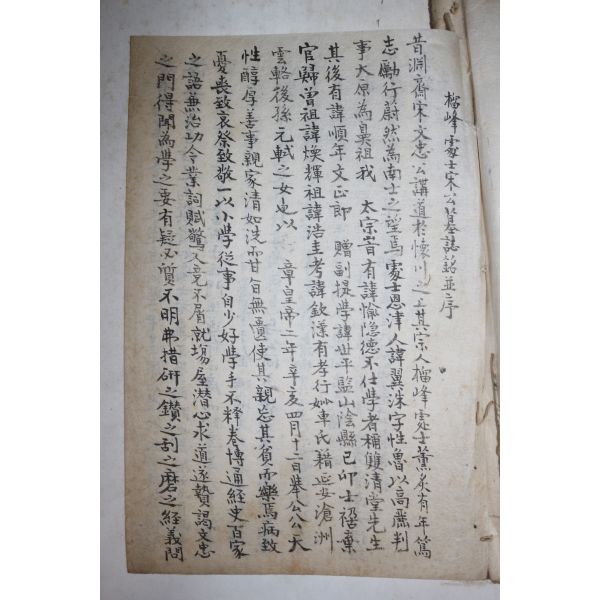 榴峰處士宋公墓誌銘並序
昔淵齋宋文忠公講道於懷川之上其宗人榴峰處士薰炙有年篤
志勵行蔚然為南士之望焉處士恩津人諱翼洙字性魯以高麗判
事大原為鼻祖我 太宗旹有諱愉隐德不仕學者稱雙清堂先生
其後有諱順年文正郎 贈副提學諱世平監山陰縣己卯士禍棄
官歸曾祖諱煥輝祖諱浩圭考諱欽漢有孝行妣車氏籍延安滄洲
雲輅後孫元軾之女也以 章皇帝二年辛亥四月十二日擧公公天
性醇厚善事親家清如洗而甘旨無匱使其親忘其貧而樂焉病致
憂喪致哀祭致敬一以小學從事自少好學手不释卷博通經史百家
之語兼治功令業詞賦驚人竟不屑就塲屋潜心求道遂贄謁文忠
之門得聞為學之要有疑必質不明弗措研之鑽之刮之磨之経義問